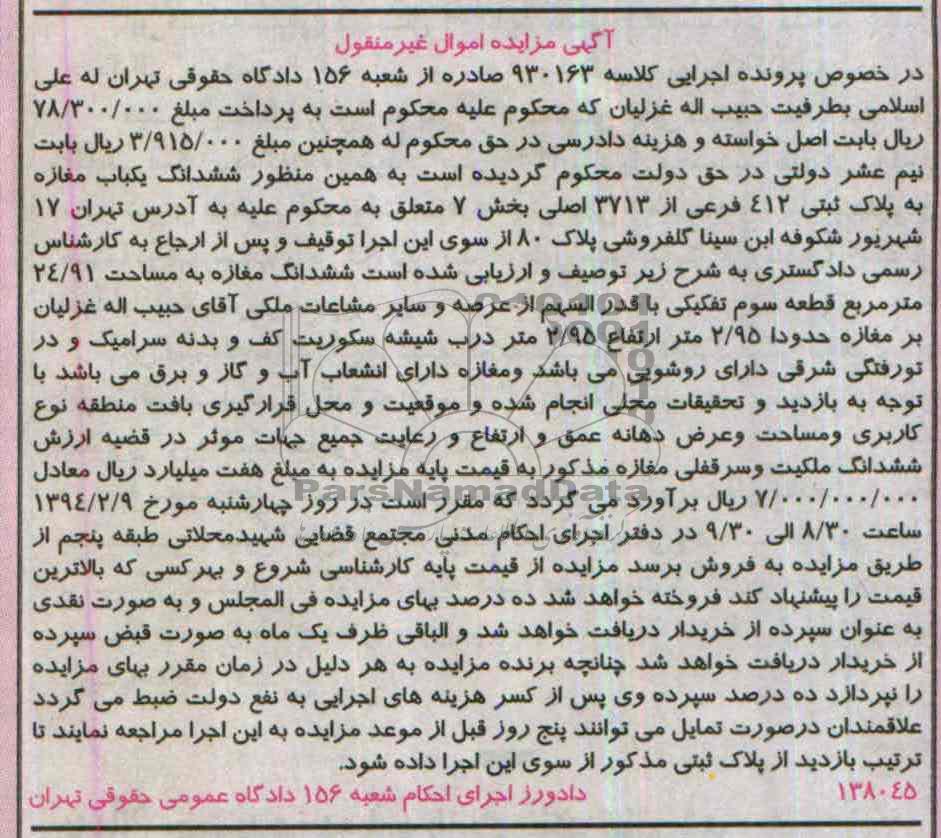 آگهی مزایده اموال غیرمنقول
در خصوص پرونده اجرایی کلاسه ۹۳۰۱۶۳ صادره از شعبه ۱۵۶ دادگاه حقوقی تهران له علی
اسلامی بطرفیت حبیب اله غزلیان که محکوم علیه محکوم است به پرداخت مبلغ ۷۸/۳۰۰/۰۰۰
ریال بابت اصل خواسته و هزینه دادرسی در حق محکوم له همچنین مبلغ ۳/۹۱۵/۰۰۰ ریال بابت
نیم عشر دولتی در حق دولت محکوم گردیده است به همین منظور ششدانگ یکباب مغازه
به پلاک ثبتی ٤١٢ فرعی از ۳۷۱۳ اصلی بخش ۷ متعلق به محکوم علیه به آدرس تهران ۱۷
شهریور شکوفه ابن سینا گلفروشی پلاک ۸۰ از سوی این اجرا توقیف و پس از ارجاع به کارشناس
رسمی دادگستری به شرح زیر توصیف و ارزیابی شده است ششدانگ مغازه به مساحت ٢٤/٩١
مترمربع قطعه سوم تفکیکی با قدر السهم از عرصه و سایر مشاعات ملکی آقای حبیب اله غزلیان
بر مغازه حدودا ۲/۹۵ متر ارتفاع ۲/۹۵ متر درب شیشه سکوریت کف و بدنه سرامیک و در
تورفتگی شرقی دارای روشویی می باشد ومغازه دارای انشعاب آب و گاز و برق می باشد با
توجه به بازدید و تحقیقات محلی انجام شده و موقعیت و محل قرارگیری بافت منطقه نوع
کاربری ومساحت وعرض دهانه عمق و ارتفاع و رعایت جمیع جهات موثر در قضیه ارزش
ششدانگ ملکیت وسرقفلی مغازه مذکور به قیمت پایه مزایده به مبلغ هفت میلیارد ریال معادل
۷/۰۰۰/۰۰۰/۰۰۰ ریال برآورد می گردد که مقرر است در روز چهارشنبه مورخ ١٣٩٤/٢/٩
ساعت ۸/۳۰ الی ۹/۳۰ در دفتر اجرای احکام مدنی مجتمع قضایی شهیدمحلاتی طبقه پنجم از
طریق مزایده به فروش برسد مزایده از قیمت پایه کارشناسی شروع و بهرکسی که بالاترین
قیمت را پیشنهاد کند فروخته خواهد شد ده درصد بهای مزایده فی المجلس و به صورت نقدی
به عنوان سپرده از خریدار دریافت خواهد شد و الباقی ظرف یک ماه به صورت قبض سپرده
از خریدار دریافت خواهد شد چنانچه برنده مزایده به هر دلیل در زمان مقرر بهای مزایده
را نپردازد ده درصد سپرده وی پس از کسر هزینه های اجرایی به نفع دولت ضبط می گردد
علاقمندان درصورت تمایل می توانند پنج روز قبل از موعد مزایده به این اجرا مراجعه نمایند تا
ترتیب بازدید از پلاک ثبتی مذکور از سوی این اجرا داده شود.
۱۳۸۰٤۵ دادورز اجرای احکام شعبه ۱۵۶ دادگاه عمومی حقوقی تهران
ParsNamadData